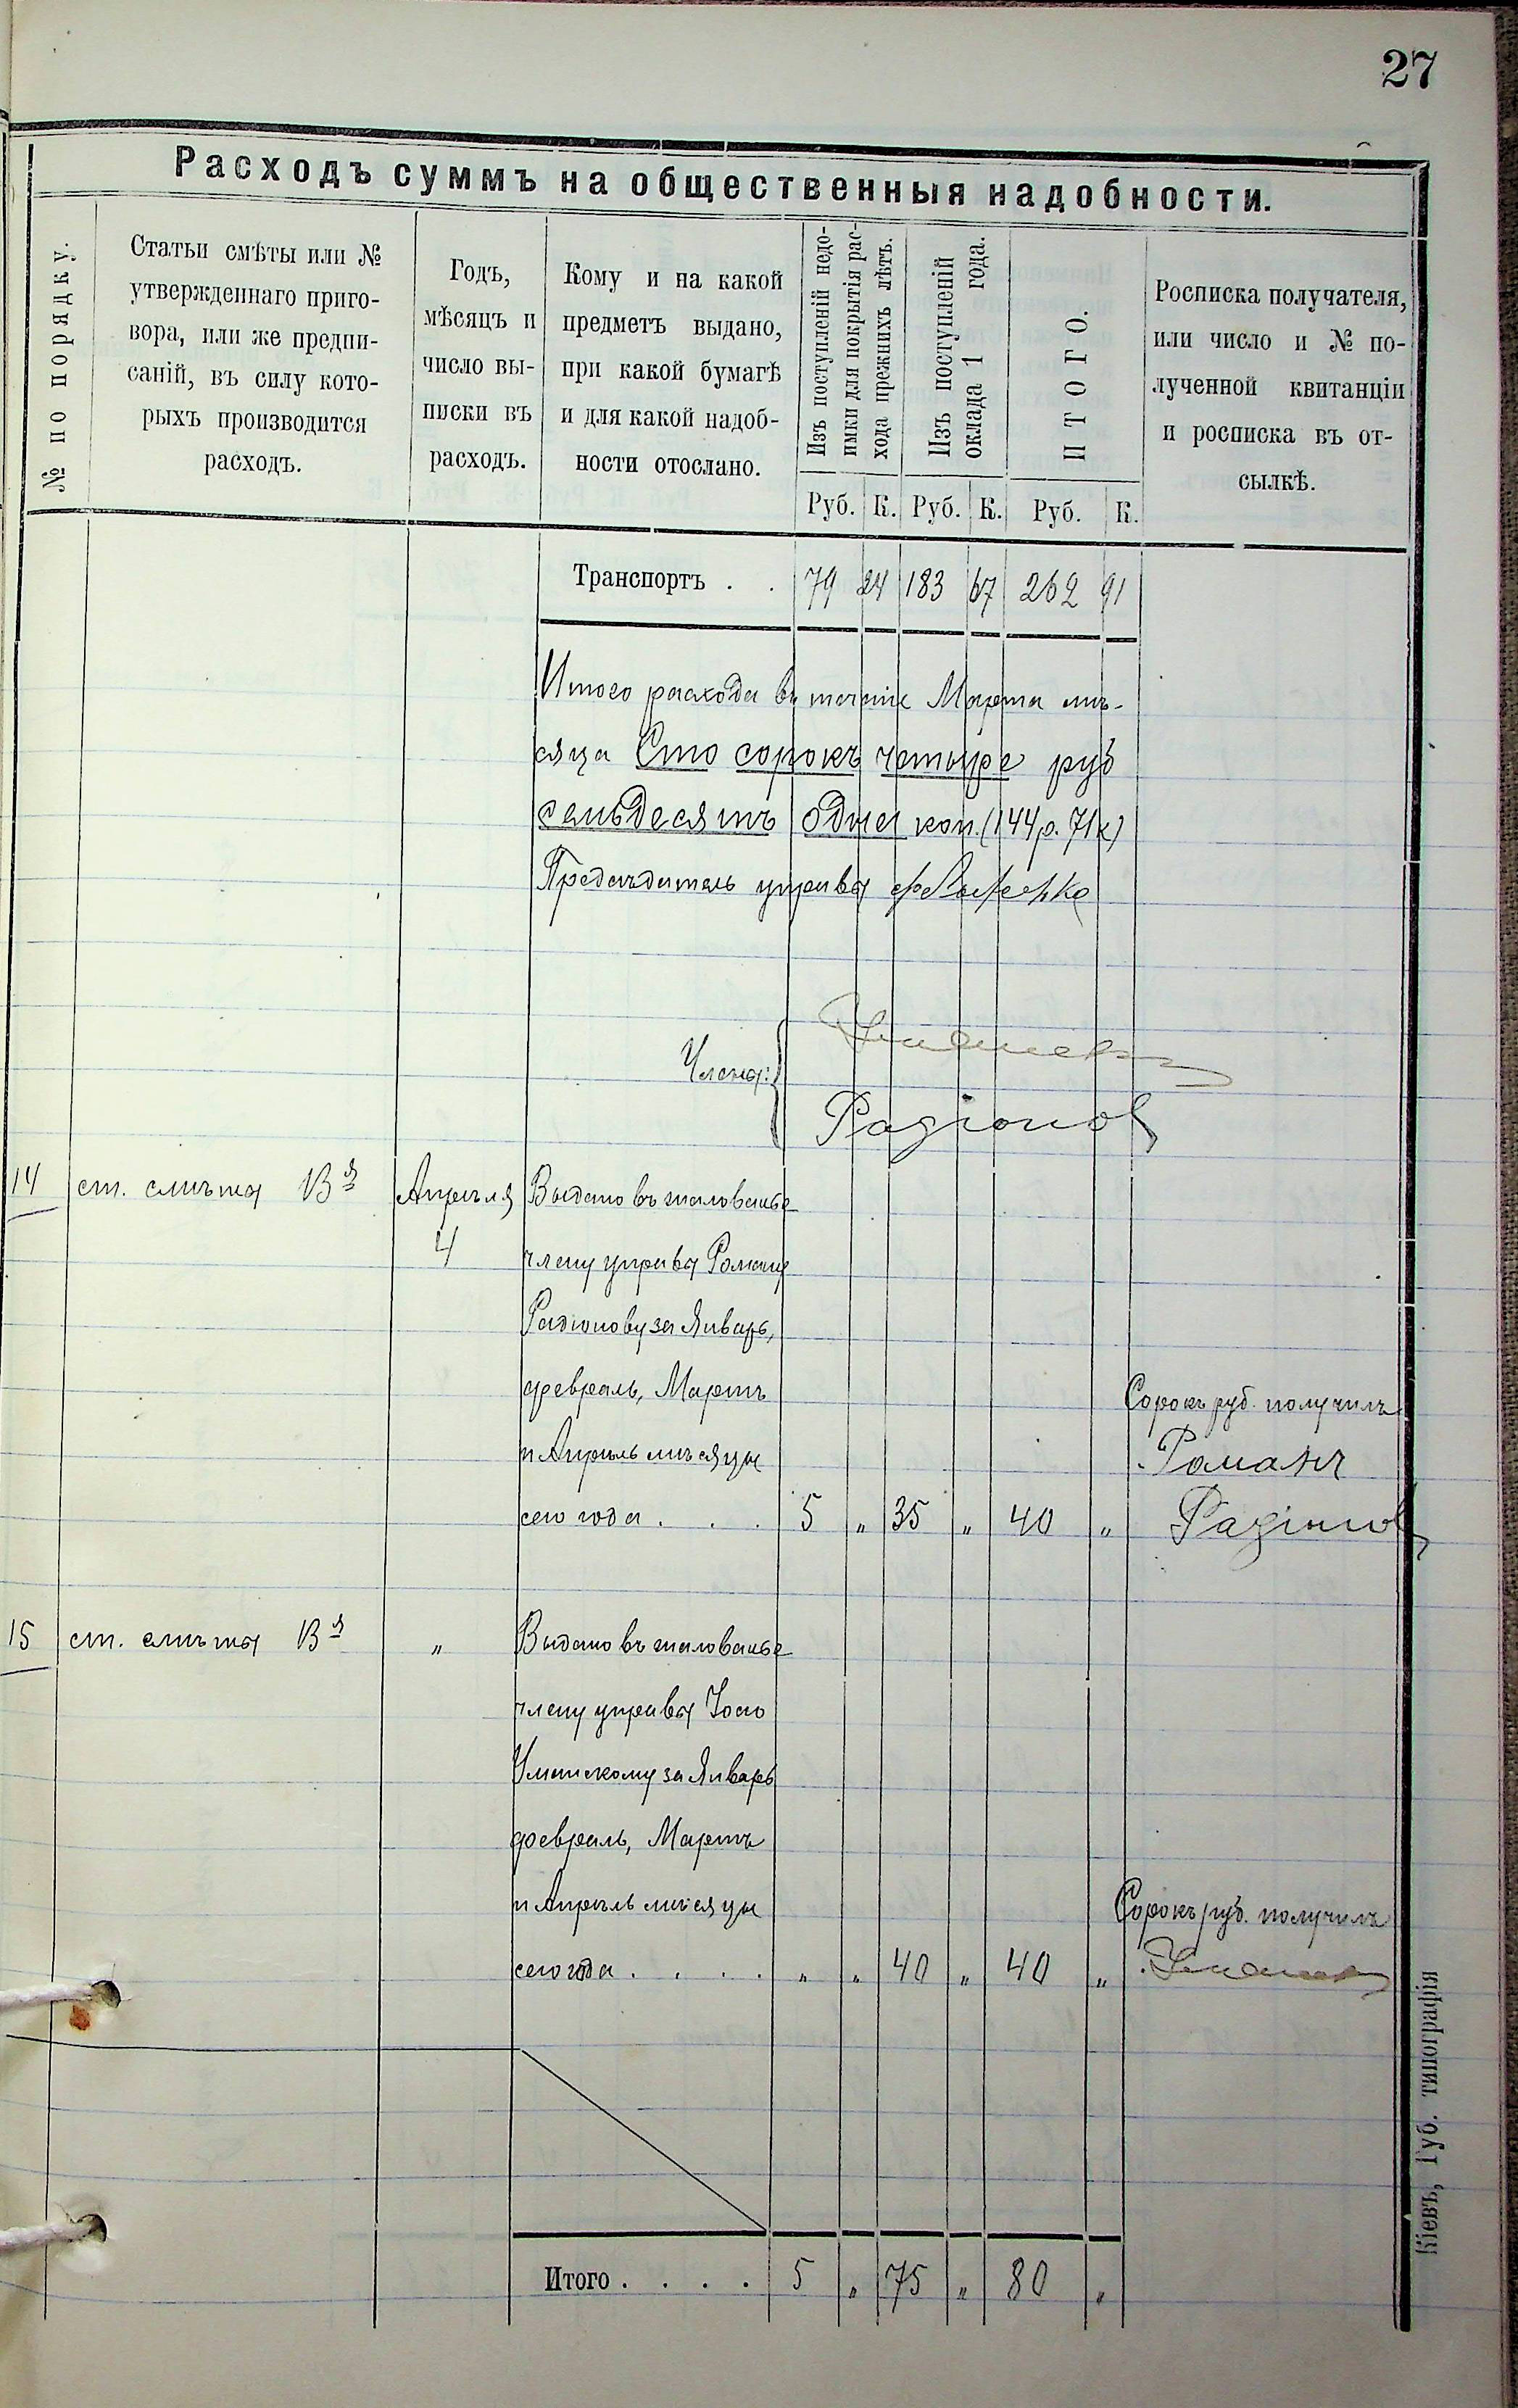 27
Расходъ суммъ на общественныя надобности.
№ по порядку.
Статьи смѣты или №
утвержденнаго приго-
вора, или же предпи-
саній, въ силу кото-
рыхъ производится
расходъ.
Годъ,
мѣсяцъ и
число вы-
писки въ
расходъ.
Кому и на какой
предметъ выдано,
при какой бумагѣ
и для какой надоб-
ности отослано.
Изъ поступленій недо-
имки для покрытія рас-
хода прежнихъ лѣтъ.
Изъ поступленій
оклада 1 года.
ИТОГО.
Росписка получателя,
или число и № по-
лученной квитанціи
и росписка въ от-
сылкѣ.
Руб. К. Руб. К. Руб. К.
Транспортъ . . 79 24 183 67 262 91
Итого расхода въ течніе Марта мѣ-
сяца Сто сорокъ четыре руб
семьдесятъ одна коп. (144 р. 71 к)
Предсѣдатель управы
Члены:
Радіонов
14 ст. смѣты Вя Апрѣля Выдано въ жалованье
4 члену управы Роману
Радіонову за Январь,
февраль, Мартъ Сорокъ руб. получилъ
и Апрѣль мѣсяцы Романъ
сего года . . . 5 „ 35 „ 40 „ Радіонов
15 ст. смѣты Вя „ Выдано въ жалованье
члену управы
Уманскому за Январь
февраль, Мартъ
и Апрѣль мѣсяцы Сорокъ руб. получилъ
сего года . . . . „ „ 40 „ 40 „
Итого . . . . 5 „ 75 „ 80 „
Кіевъ, Губ. типографія